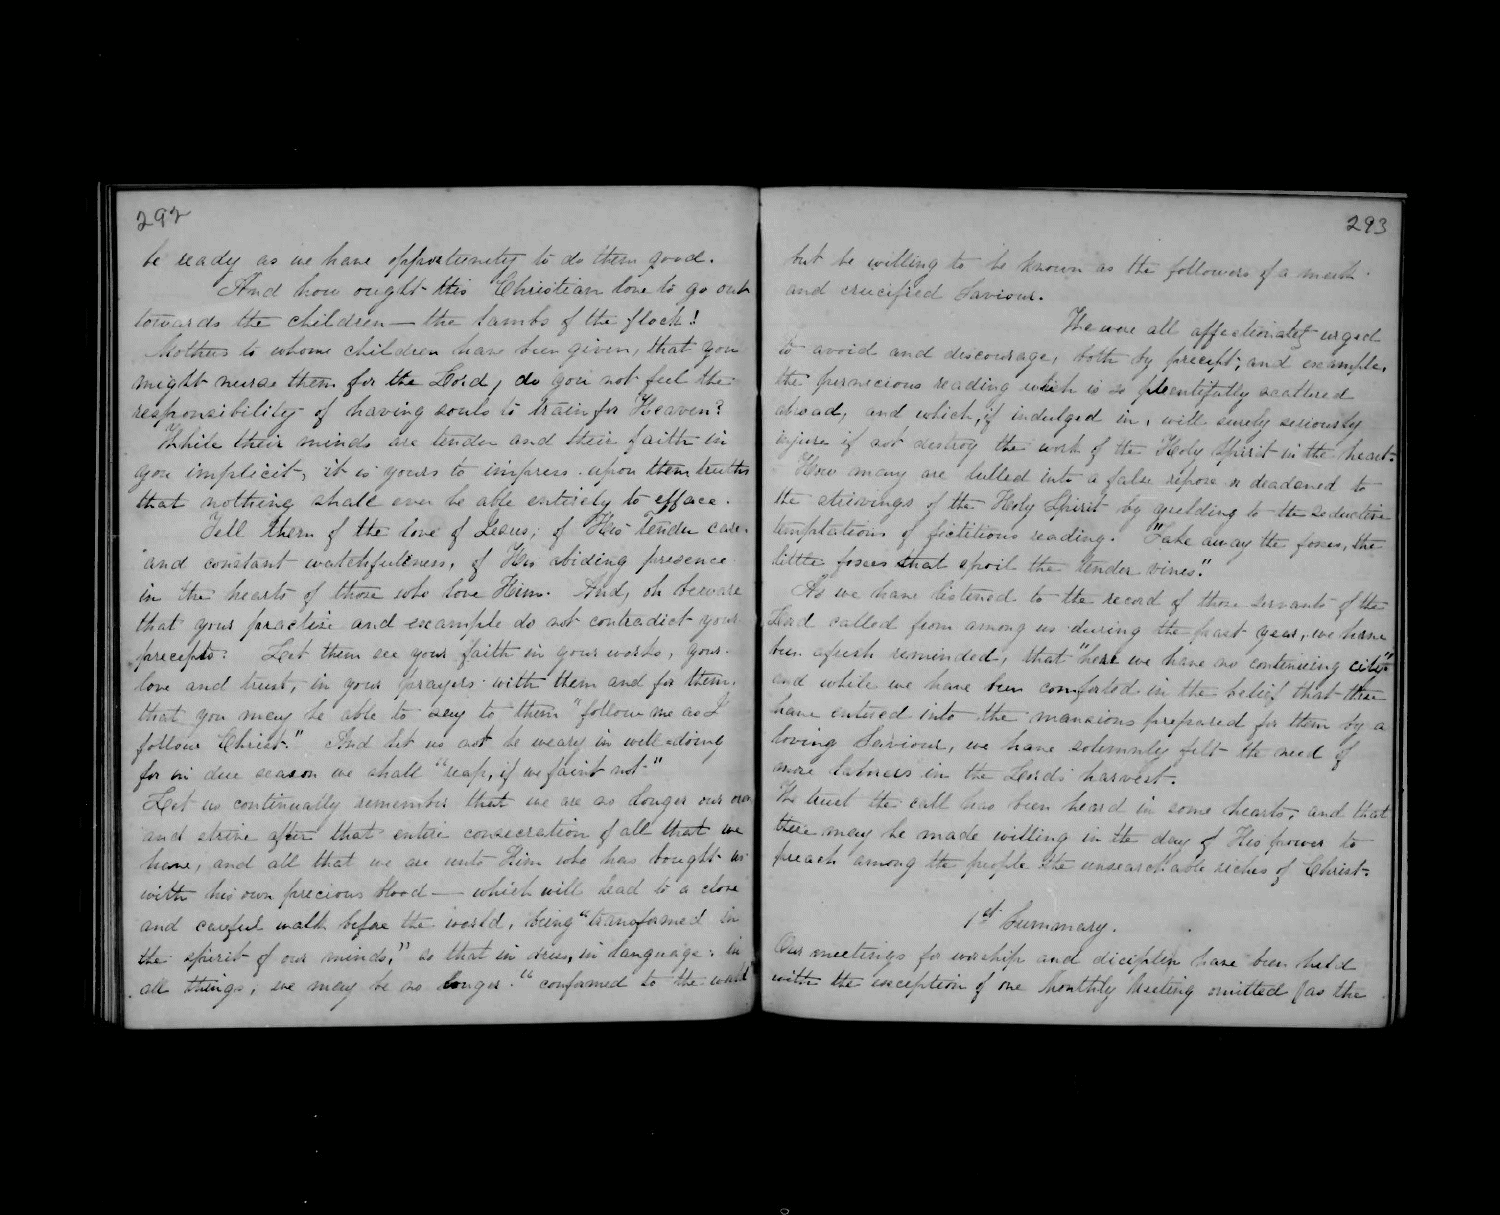 292
be ready as we have opportunity to do them good.
And how ought this Christian love to go out
towards the children — the lambs of the flock!
Mothers to whome children have been given, that you
might nurse them for the Lord, do you not feel the
responsibility of having souls to train for Heaven?
While their minds are tender and their faith in
you implicit, it is yours to impress upon them truths
that nothing shall ever be able entirely to efface.
Tell them of the love of Jesus, of His tender care
and constant watchfulness, of His abiding presence
in the hearts of those who love Him. And, oh beware
that your practise and example do not contradict your
precepts. Let them see your faith in your works, your
love and trust, in your prayers with them and for them,
that you may be able to say to them "follow me as I
follow Christ." And let us not be weary in well-doing
for in due season we shall "reap, if we faint not."
Let us continually remember that we are no longer our own
and strive after that entire consecration of all that we
have, and all that we are unto Him who has bought us
with his own precious blood — which will lead to a close
and careful walk before the world, being "transformed in
the spirit of our minds," so that in dress, in language, in
all things, we may be no longer "conformed to the world
293
but be willing to be known as the followers of a meek
and crucified Saviour.
We were all affectionately urged
to avoid and discourage, both by precept, and example,
the pernicious reading which is so plentifully scattered
abroad, and which, if indulged in, will surely seriously
injure if not destroy the work of the Holy Spirit in the heart.
How many are lulled into a false repose or deadened to
the strivings of the Holy Spirit by yielding to the seductive
temptations of fictitious reading. "Take away the foxes, the
little foxes that spoil the tender vines."
As we have listened to the record of those servants of the
Lord called from among us during the past year, we have
been afresh reminded, that "here we have no continuing city"
and while we have been comforted in the belief that these
have entered into the mansions prepared for them by a
loving Saviour, we have solemnly felt the need of
more laborers in the Lord's harvest.
We trust the call has been heard in some hearts, and that
these may be made willing in the day of His power to
preach among the people the unsearchable riches of Christ.
1st Summary.
Our meetings for worship and diciplin have been held
with the exception of one Monthly Meeting omitted (as the